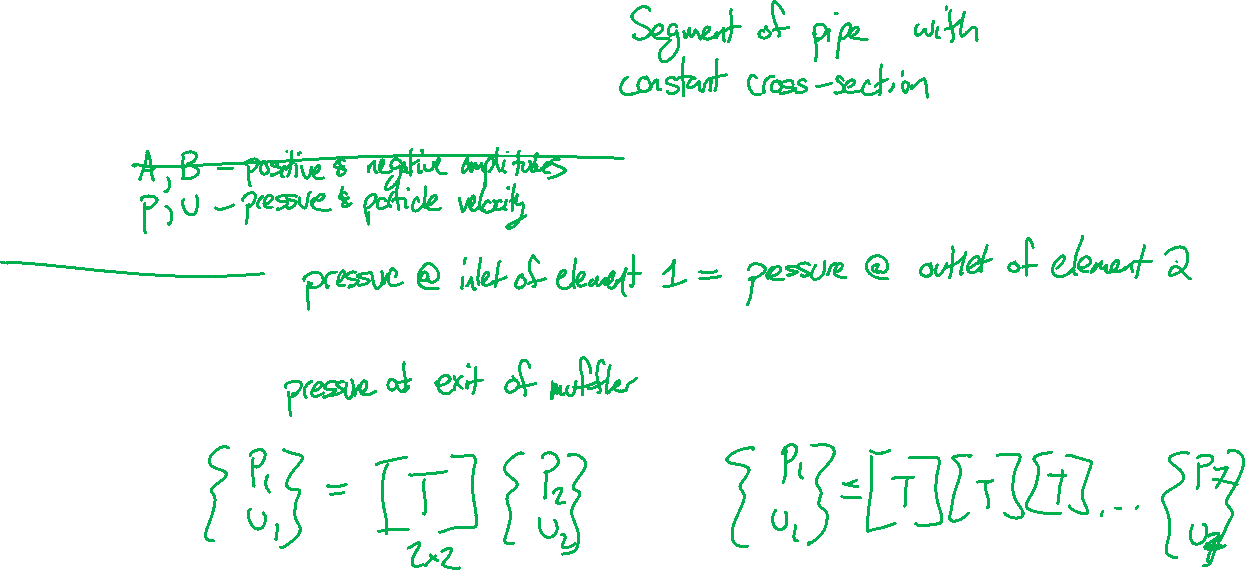 Segment of pipe with
constant cross-section
A, B - positive & negative amplitudes
P, U - pressure & particle velocity
pressure @ inlet of element 1 = pessure @ outlet of element 2
pressure at exit of muffler
{P₁ U₁} = [T] {P₂ U₂}
2x2
{P₁ U₁} = [T][T][T]... {P7 U7}